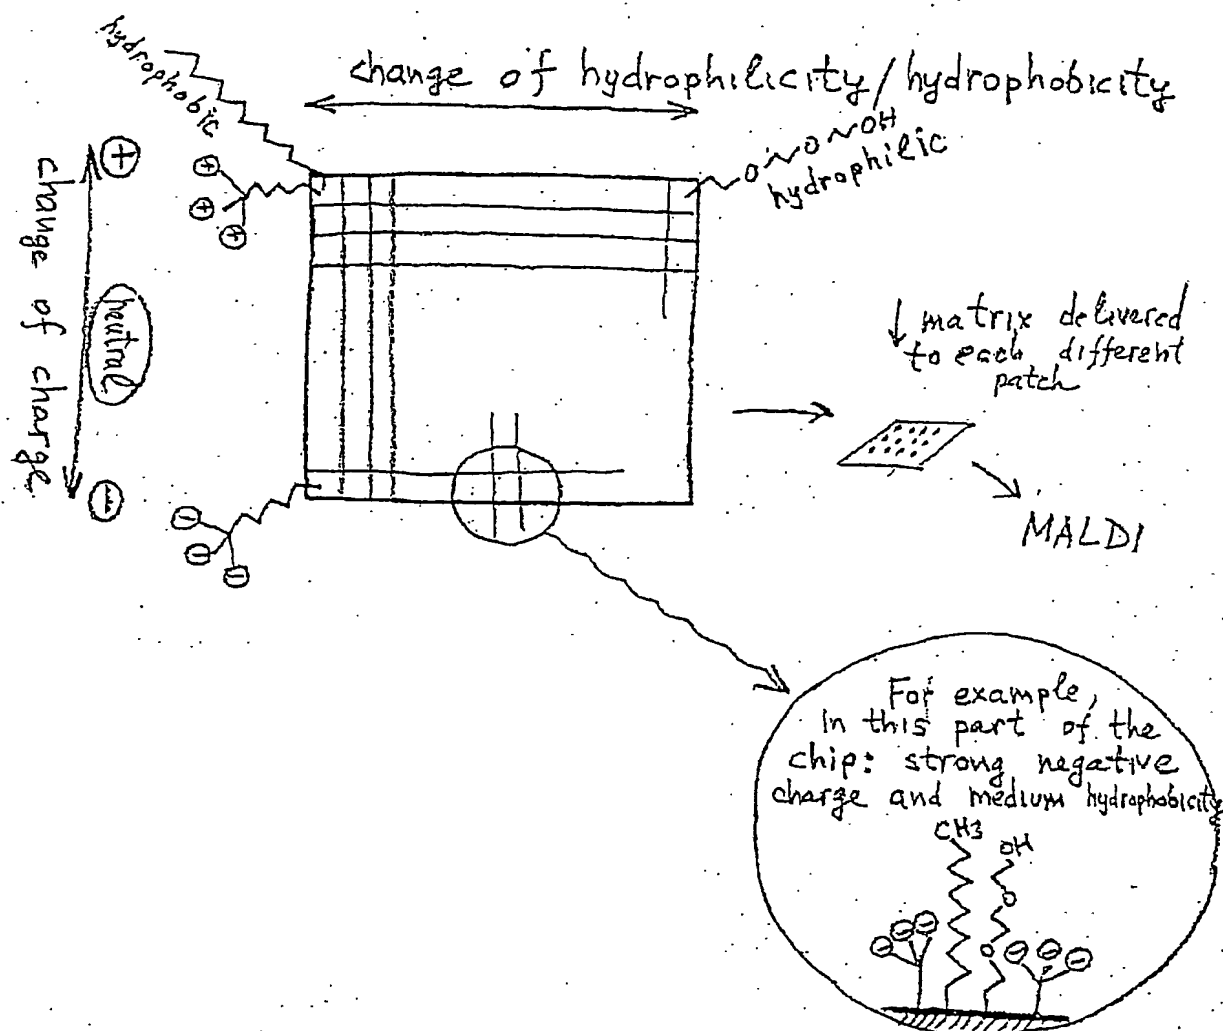 hydrophobic
change of hydrophilicity/hydrophobicity
O O OH
hydrophilic
+
+
+
+
change of charge
neutral
-
-
-
-
↓ matrix delivered
to each different
patch
MALDI
For example,
in this part of the
chip: strong negative
charge and medium hydrophobicity
CH3
OH
O
O
- - -
- - -